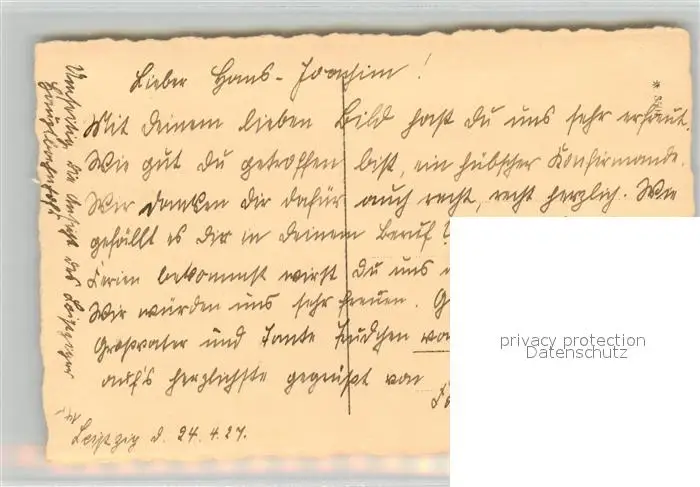 Lieber Hans-Joachim!
Mit deinem lieben Bild hast du uns sehr erfreut.
Wie gut du getroffen bist, ein hübscher Konfirmande.
Wir danken dir dafür auch recht, recht herzlich. Wie
gefällt es dir in deinem Beruf?
Ferien bekommst wirst du uns
Wir würden uns sehr freuen.
Grossvater und Tante
auf's herzlichste gegrüßt von
Leipzig d. 24.4.27.
Umseitig die Ansicht des Leipziger
Hauptbahnhofs
privacy protection
Datenschutz